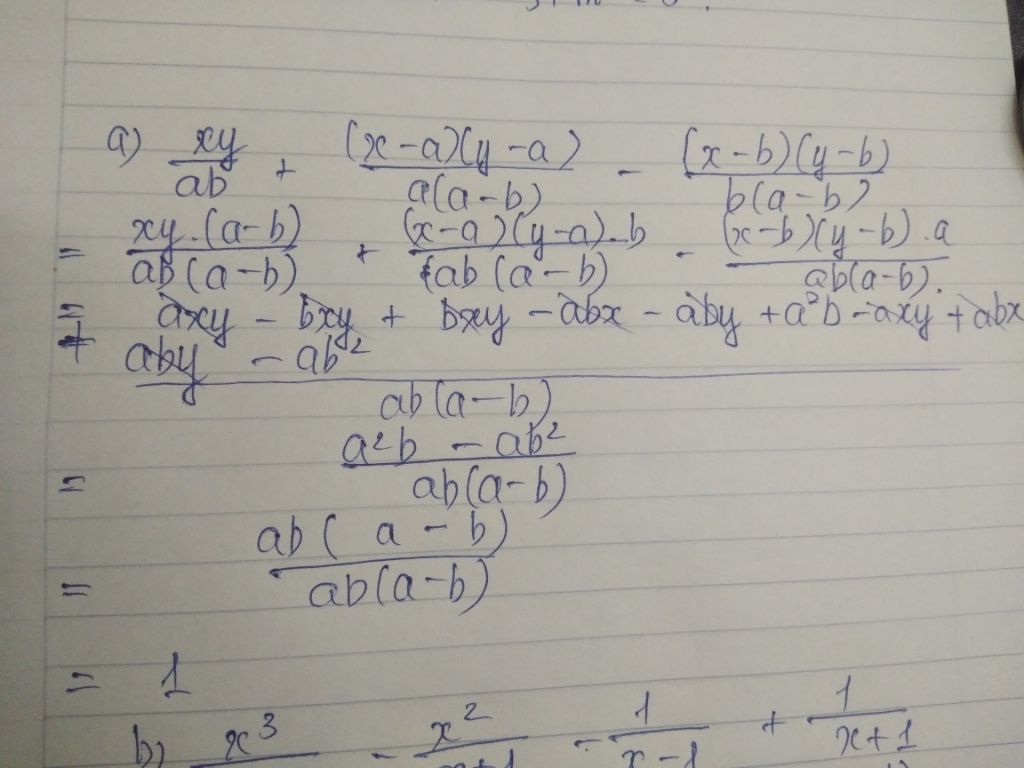 a) xy/ab + (x-a)(y-a)/a(a-b) - (x-b)(y-b)/b(a-b)
= xy.(a-b)/ab(a-b) + (x-a)(y-a).b/ab(a-b) - (x-b)(y-b).a/ab(a-b).
= axy - bxy + bxy - abx - aby + a²b - axy + abx
+ aby - ab²
ab(a-b)
= a²b - ab²/ab(a-b)
= ab(a-b)/ab(a-b)
= 1
b) x³ - x²/x+1 - 1/x-1 + 1/x+1